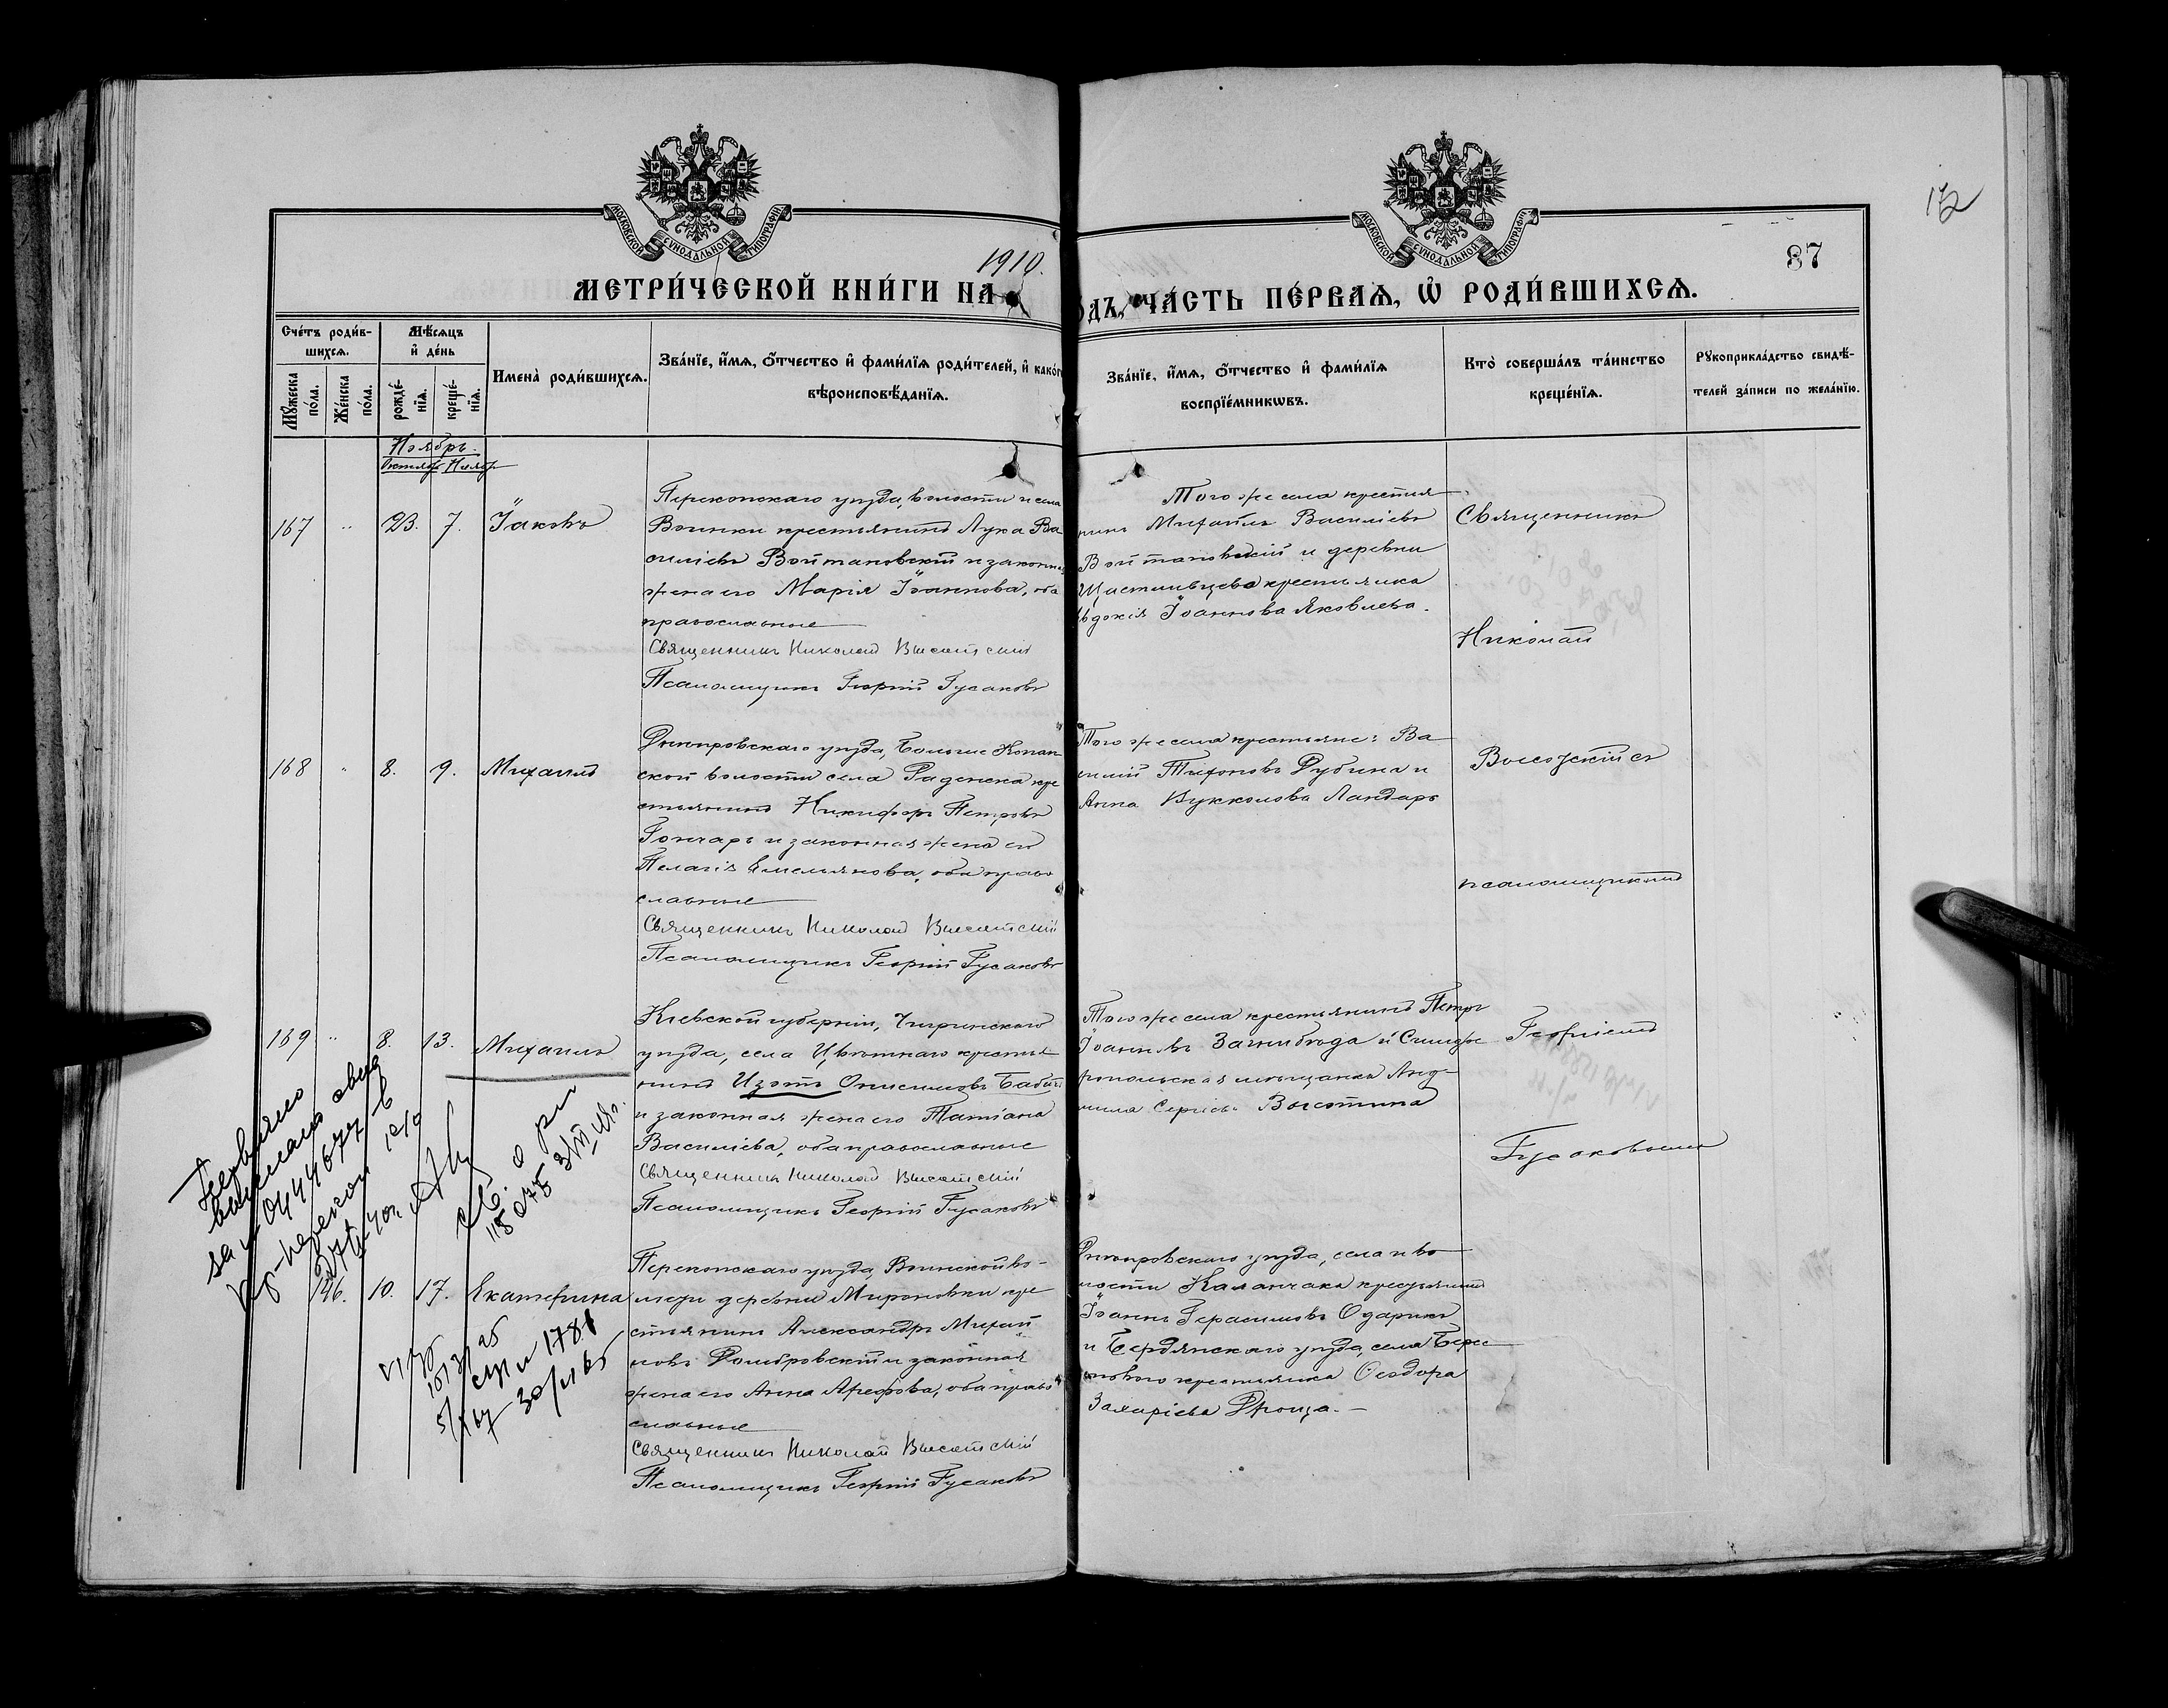 172
87
МОСКОВСКОЙ СѴНОДАЛЬНОЙ ТИПОГРАФІИ
МОСКОВСКОЙ СѴНОДАЛЬНОЙ ТИПОГРАФІИ
1910.
МЕТРИ́ЧЕСКОЙ КНИ́ГИ НА
ОДЪ, ЧА́СТЬ ПЕ́РВАѦ, Ѽ РОДИ́ВШИХСѦ.
Сче́тъ роди́в-
шихсѧ.
Мꙋ́жеска по́ла.
Же́нска по́ла.
Мѣ́сѧцъ и҆ де́нь
рожде́-
нїѧ.
креще́-
нїѧ.
Имена̀ роди́вшихсѧ.
Зва́нїе, и҆́мѧ, ѻ҆́тчество и҆ фами́лїѧ роди́телей, и҆ како́г
вѣроисповѣ́данїѧ.
Зва́нїе, и҆́мѧ, ѻ҆́тчество и҆ фами́лїѧ
воспрїе́мникѡвъ.
Кто̀ соверша́лъ та́инство
креще́нїѧ.
Рꙋкоприкла́дство свидѣ́-
телей за́писи по жела́нїю.
Ноябрь.
Октябр Ноябр
167 " 23. 7. Іаковъ
Перекопскаго уѣзда, волости и села
Воинки крестьянинъ Лука Ва
силіевъ Войтановскій и законная
жена его Марія Іоаннова, оба
православные
Священникъ Николай Высотскій
Псаломщикъ Георгій Гусаковъ
Того же села крестья
нинъ Михаилъ Василіевъ
Войтановскій и деревни
Щастливцева крестьянка
вдокія Іоаннова Яковлева.
Священникъ
Николай
168 " 8. 9. Михаилъ
Днѣпровскаго уѣзда, Больше Копан
ской волости села Раденска кре
стьянинъ Никифоръ Петровъ
Гончаръ и законная жена его
Пелагія Емельянова, оба право
славные
Священникъ Николай Высотскій
Псаломщикъ Георгій Гусаковъ
Того же села крестьяне: Ва
силій Тихоновъ Дубина и
Анна Вукколова Ландаръ
Высотскій съ
псаломщикомъ
169 " 8. 13. Михаилъ
Кіевской губерніи, Чигиринскаго
уѣзда, села Цвѣтнаго крестья
нинъ Изотъ Онисимовъ Бабич
и законная жена его Татіана
Василіева, оба православные
Священникъ Николай Высотскій
Псаломщикъ Георгій Гусаковъ
Того же села крестьянинъ Петръ
Іоанновъ Загнибѣда и Симфе
ропольская мѣщанка Люд-
мила Сергіева Высотина
Георгіемъ
Гусаковымъ
св. о р
146. 10. 17. Екатерина
Перекопскаго уѣзда, Воинской во-
лости деревни Мироновки кре
стьянинъ Александръ Михай
ловъ Домбровскій и законная
жена его Анна Арефова, оба право
славные
Священникъ Николай Высотскій
Псаломщикъ Георгій Гусаковъ
Днѣпровскаго уѣзда, села и во
лости Каланчака крестьянинъ
Іоаннъ Герасимовъ Одарикъ
и Бердянскаго уѣзда, села Берес
товаго крестьянка Ѳеодора
Захаріева Дроща.